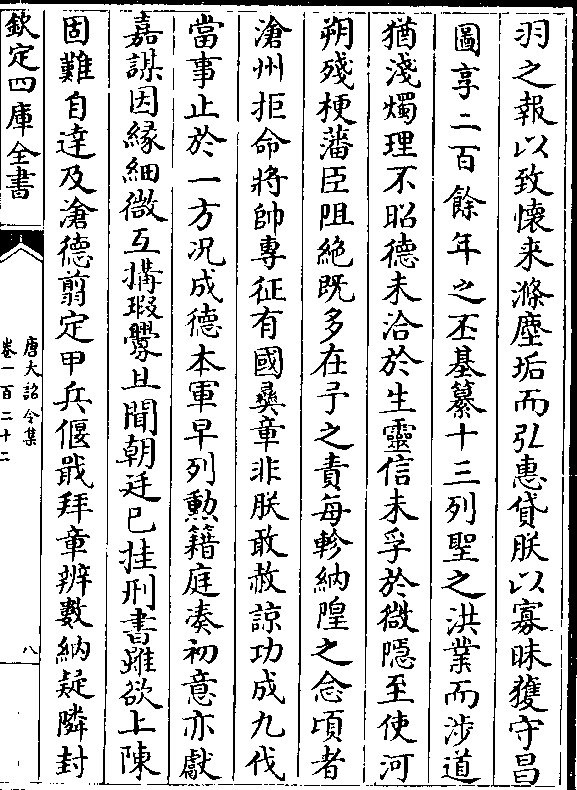 羽之報以致懷来滌塵垢而弘惠貸朕以寡昧獲守昌
圖享二百餘年之丕基纂十三列聖之洪業而涉道
猶淺燭理不昭德未洽於生靈信未孚於微隱至使河
朔殘梗藩臣阻絶既多在予之責每軫納隍之念頃者
滄州拒命將帥專征有國彞章非朕敢赦諒功成九伐
當事止於一方况成德本軍早列勲籍庭凑初意亦獻
嘉謀因緣細微互搆瑕釁且聞朝廷已挂刑書雖欲上陳
固難自達及滄德翦定甲兵偃戢拜章辨數納疑隣封
欽定四庫全書
唐大詔令集
卷一百二十二
八